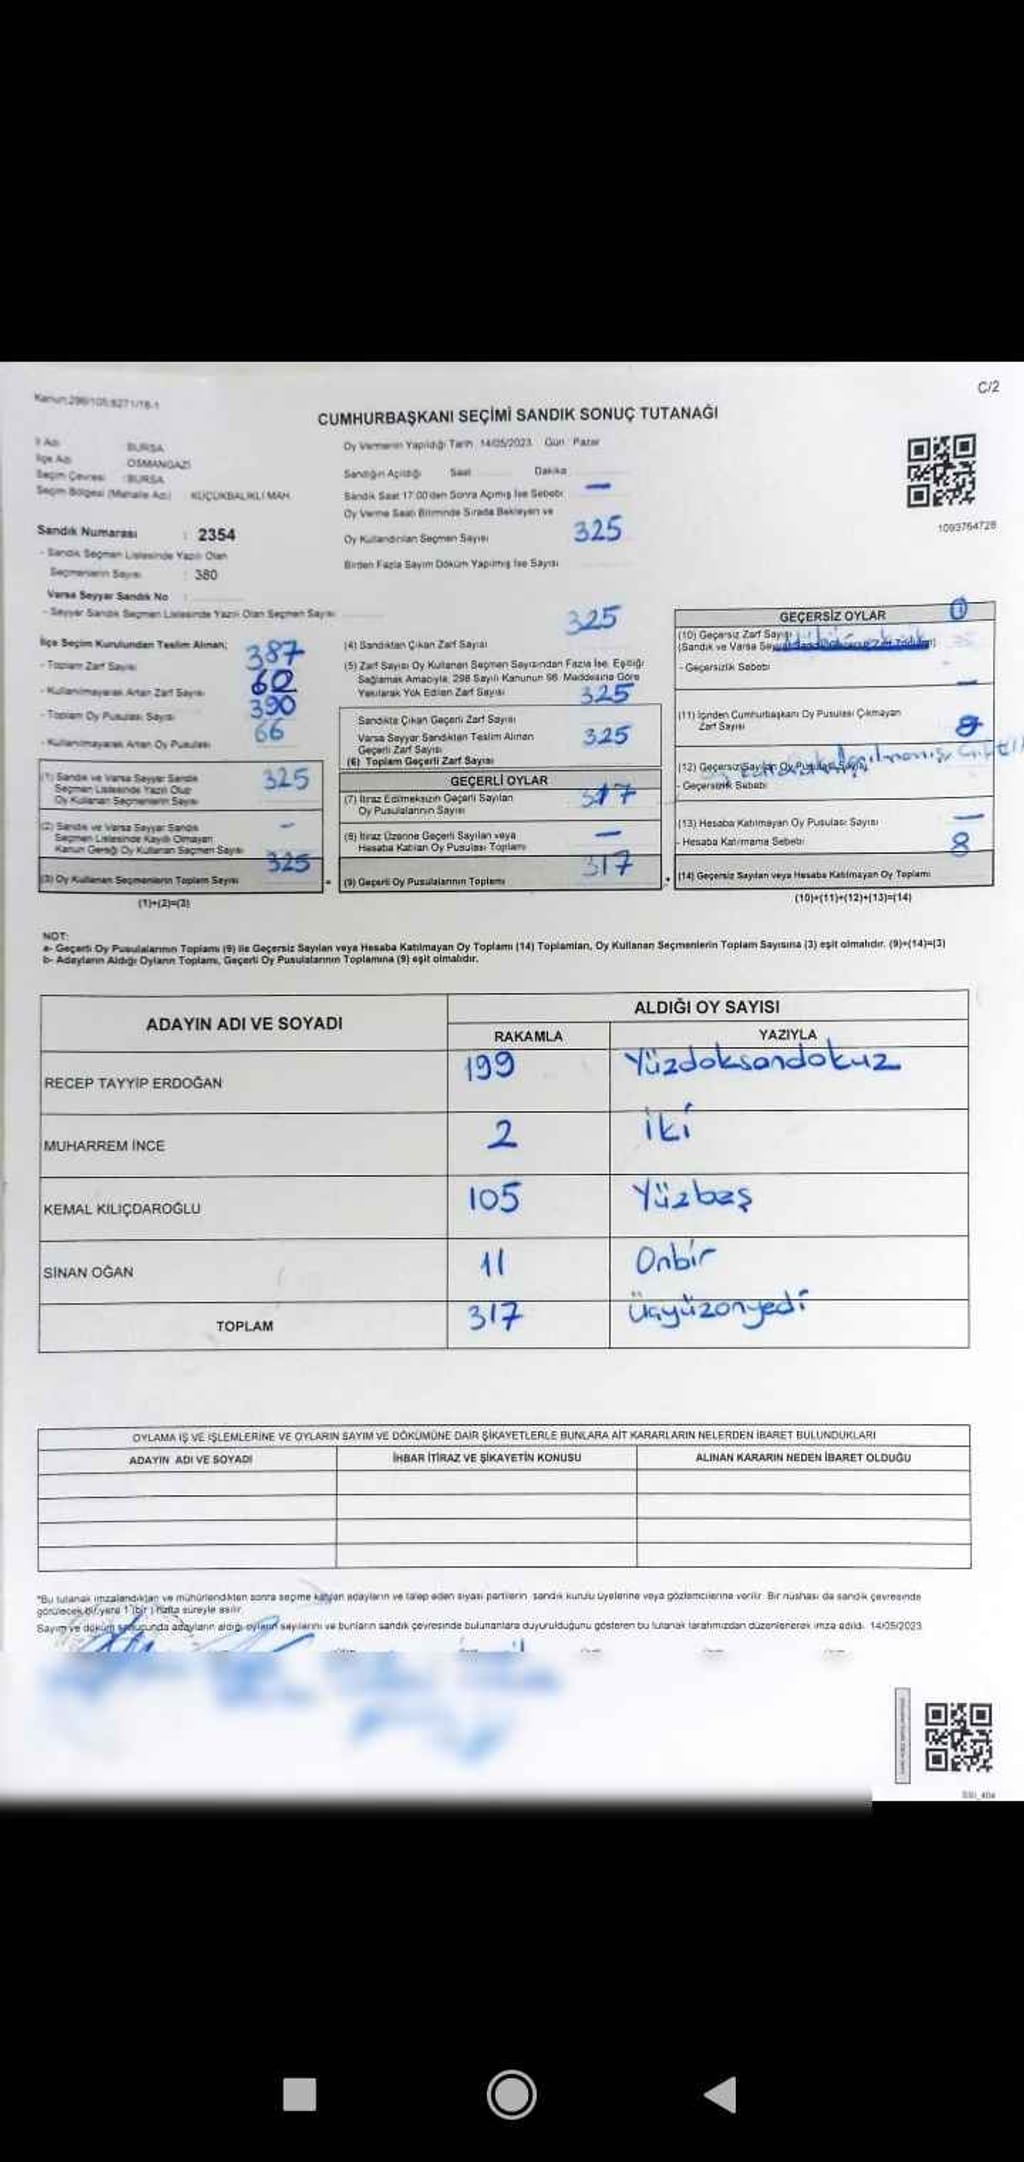 Kanun:298/105,6271/18-1
C/2
CUMHURBAŞKANI SEÇİMİ SANDIK SONUÇ TUTANAĞI
İl Adı BURSA
İlçe Adı OSMANGAZİ
Seçim Çevresi : BURSA
Seçim Bölgesi (Mahalle Adı) KÜÇÜKBALIKLI MAH.
Sandık Numarası : 2354
- Sandık Seçmen Listesinde Yazılı Olan
Seçmenlerin Sayısı : 380
Varsa Seyyar Sandık No :
- Seyyar Sandık Seçmen Listesinde Yazılı Olan Seçmen Sayısı
Oy Vermenin Yapıldığı Tarih 14/05/2023 Gün Pazar
Sandığın Açıldığı Saat Dakika
Sandık Saat 17:00'den Sonra Açılmış İse Sebebi —
Oy Verme Saati Bitiminde Sırada Bekleyen ve
Oy Kullandırılan Seçmen Sayısı 325
Birden Fazla Sayım Döküm Yapılmış İse Sayısı
1093764728
İlçe Seçim Kurulundan Teslim Alınan;
- Toplam Zarf Sayısı 387
- Kullanılmayarak Artan Zarf Sayısı 62
- Toplam Oy Pusulası Sayısı 390
- Kullanılmayarak Artan Oy Pusulası 66
(1) Sandık ve Varsa Seyyar Sandık
Seçmen Listesinde Yazılı Olup
Oy Kullanan Seçmenlerin Sayısı 325
(2) Sandık ve Varsa Seyyar Sandık
Seçmen Listesinde Kayıtlı Olmayan
Kanun Gereği Oy Kullanan Seçmen Sayısı -
(3) Oy Kullanan Seçmenlerin Toplam Sayısı 325
(1)+(2)=(3)
(4) Sandıktan Çıkan Zarf Sayısı 325
(5) Zarf Sayısı Oy Kullanan Seçmen Sayısından Fazla İse, Eşitliği
Sağlamak Amacıyla, 298 Sayılı Kanunun 98. Maddesine Göre
Yakılarak Yok Edilen Zarf Sayısı
Sandıkta Çıkan Geçerli Zarf Sayısı 325
Varsa Seyyar Sandıkten Teslim Alınan
Geçerli Zarf Sayısı
(6) Toplam Geçerli Zarf Sayısı 325
GEÇERLİ OYLAR
(7) İtiraz Edilmeksizin Geçerli Sayılan
Oy Pusulalarının Sayısı 317
(8) İtiraz Üzerine Geçerli Sayılan veya
Hesaba Katılan Oy Pusulası Toplamı —
(9) Geçerli Oy Pusulalarının Toplamı 317
GEÇERSİZ OYLAR
(10) Geçersiz Zarf Sayısı 0
(Sandık ve Varsa
- Geçersizlik Sebebi
(11) İçinden Cumhurbaşkanı Oy Pusulası Çıkmayan
Zarf Sayısı —
(12) Geçersiz Sayılan Oy Pusulası Sayısı 8
- Geçersizlik Sebebi
(13) Hesaba Katılmayan Oy Pusulası Sayısı —
- Hesaba Katılmama Sebebi
(14) Geçersiz Sayılan veya Hesaba Katılmayan Oy Toplamı 8
(10)+(11)+(12)+(13)=(14)
NOT:
a- Geçerli Oy Pusulalarının Toplamı (9) ile Geçersiz Sayılan veya Hesaba Katılmayan Oy Toplamı (14) Toplamları, Oy Kullanan Seçmenlerin Toplam Sayısına (3) eşit olmalıdır. (9)+(14)=(3)
b- Adayların Aldığı Oyların Toplamı, Geçerli Oy Pusulalarının Toplamına (9) eşit olmalıdır.
ADAYIN ADI VE SOYADI ALDIĞI OY SAYISI
RAKAMLA YAZIYLA
RECEP TAYYİP ERDOĞAN 199 Yüzdoksandokuz
MUHARREM İNCE 2 İki
KEMAL KILIÇDAROĞLU 105 Yüzbeş
SİNAN OĞAN 11 Onbir
TOPLAM 317 Üçyüzonyedi
OYLAMA İŞ VE İŞLEMLERİNE VE OYLARIN SAYIM VE DÖKÜMÜNE DAİR ŞİKAYETLERLE BUNLARA AİT KARARLARIN NELERDEN İBARET BULUNDUKLARI
ADAYIN ADI VE SOYADI İHBAR İTİRAZ VE ŞİKAYETİN KONUSU ALINAN KARARIN NEDEN İBARET OLDUĞU
*Bu tutanak imzalandıktan ve mühürlendikten sonra seçime katılan adayların ve talep eden siyasi partilerin sandık kurulu üyelerine veya gözlemcilerine verilir. Bir nüshası da sandık çevresinde
görülecek bir yere 1 (bir) hafta süreyle asılır.
Sayım ve döküm sonucunda adayların aldığı oyların sayılarını ve bunların sandık çevresinde bulunanlara duyurulduğunu gösteren bu tutanak tarafımızdan düzenlenerek imza edildi. 14/05/2023